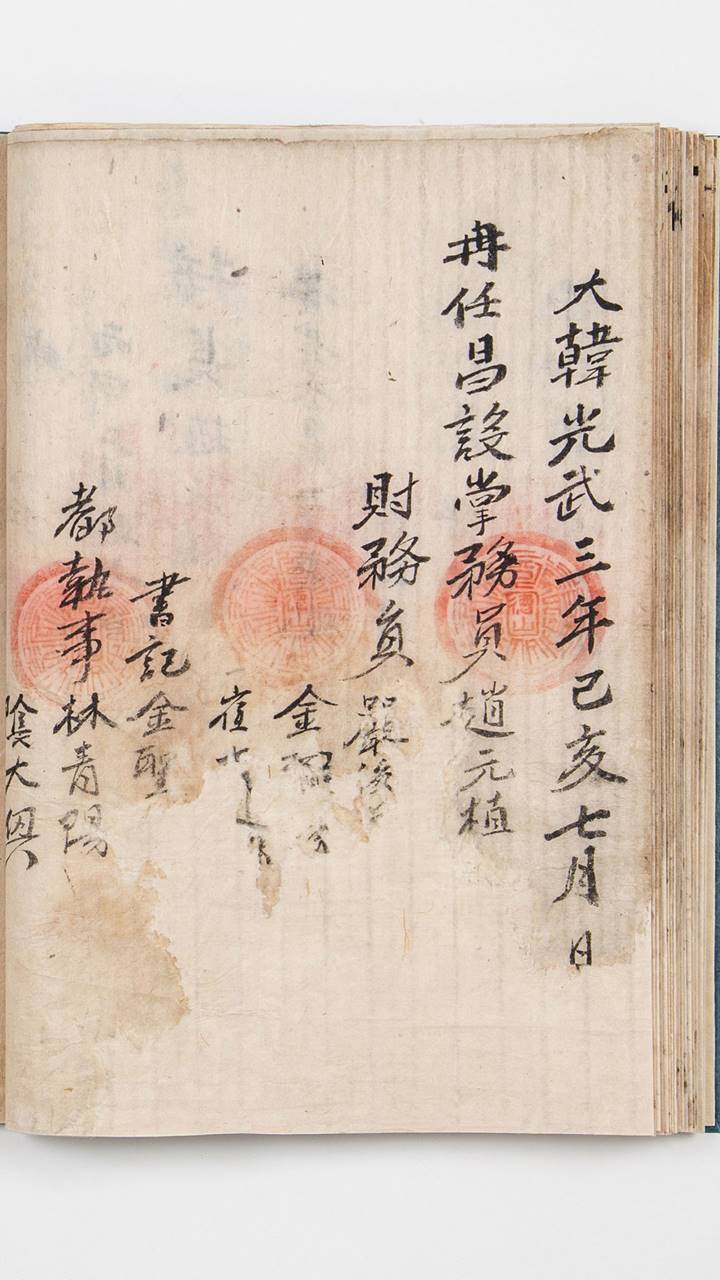 大韓光武三年己亥七月 日
再任昌設掌務員趙元植
財務員 嚴
金
崔
書記 金聖
都執事 林青陽
大